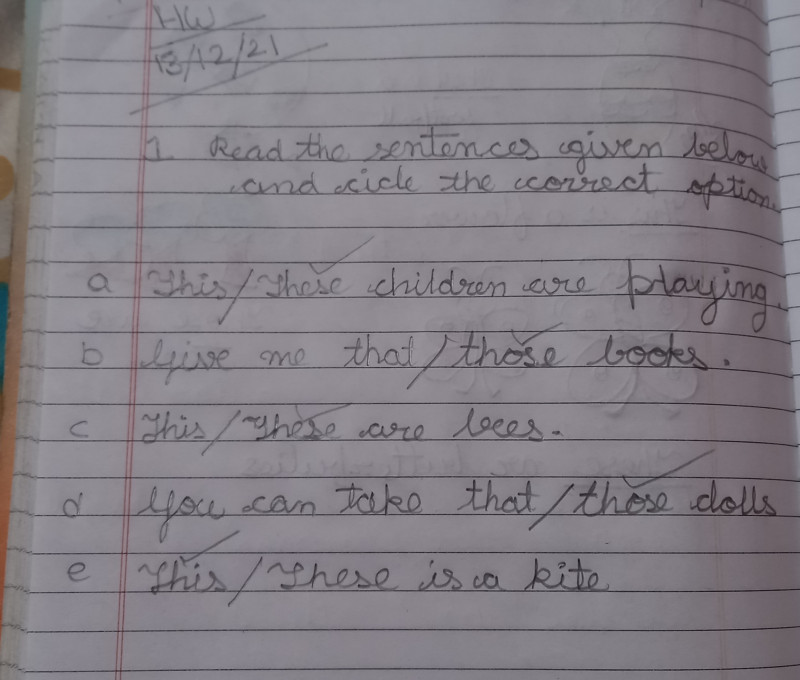 HW
13/12/21
1. Read the sentences given below
and cicle the correct option.
a This/These children are playing.
b Give me that/those books.
c This/These are bees.
d You can take that/those dolls
e This/These is a kite